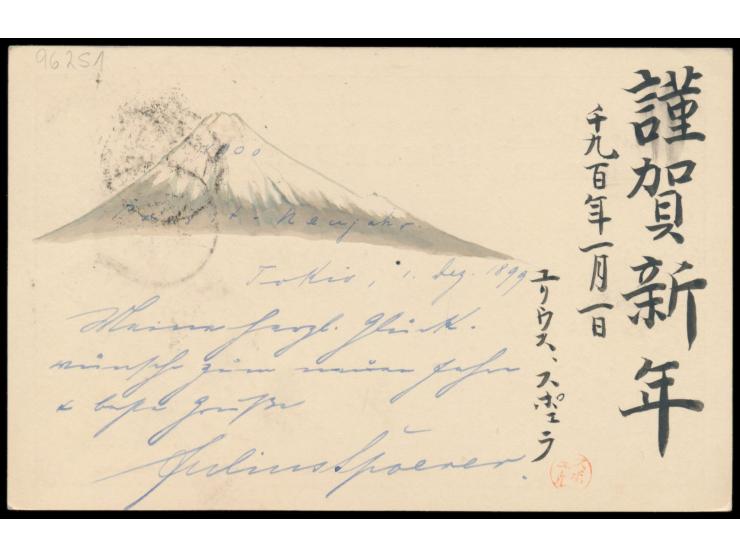 96251
謹賀新年
千九百年一月一日
ユリウス、スポエラ
1900
Neujahr.
Tokio, 1. Dez. 1899
Meine herzl. Glück-
wünsche zum neuen Jahre
& beste Grüße
Julius Spoerer.